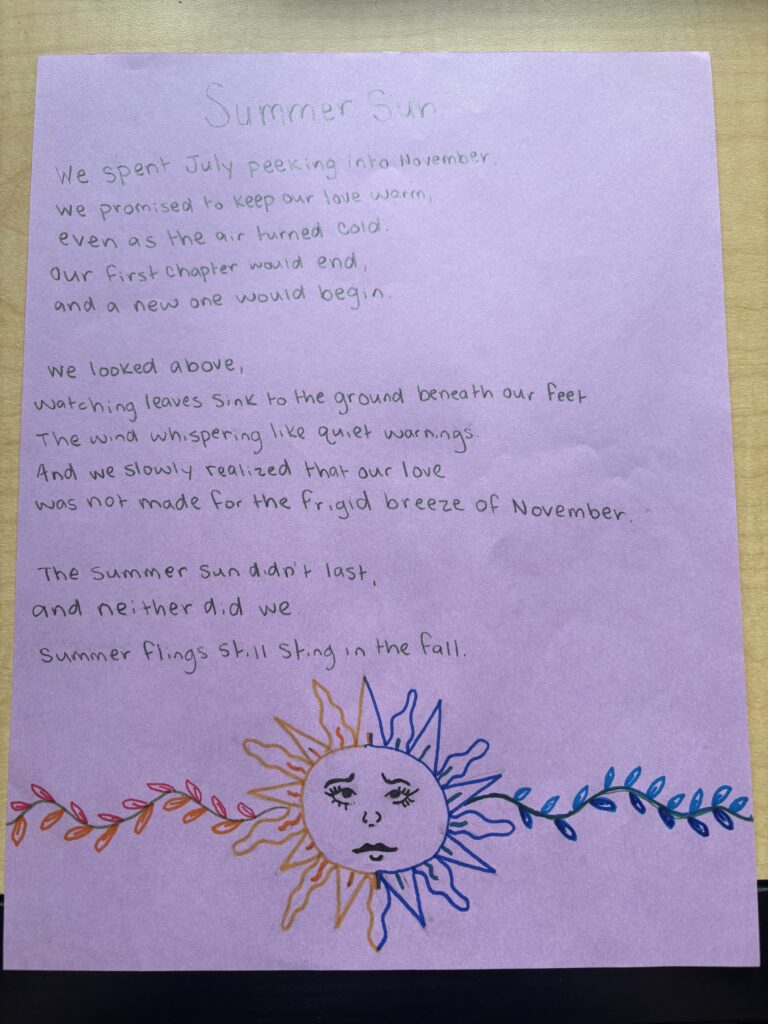 Summer Sun
We spent July peeking into November.
We promised to keep our love warm,
even as the air turned cold.
Our first chapter would end,
and a new one would begin.
We looked above,
watching leaves sink to the ground beneath our feet
The wind whispering like quiet warnings.
And we slowly realized that our love
was not made for the frigid breeze of November.
The summer sun didn't last,
and neither did we.
Summer flings still sting in the fall.